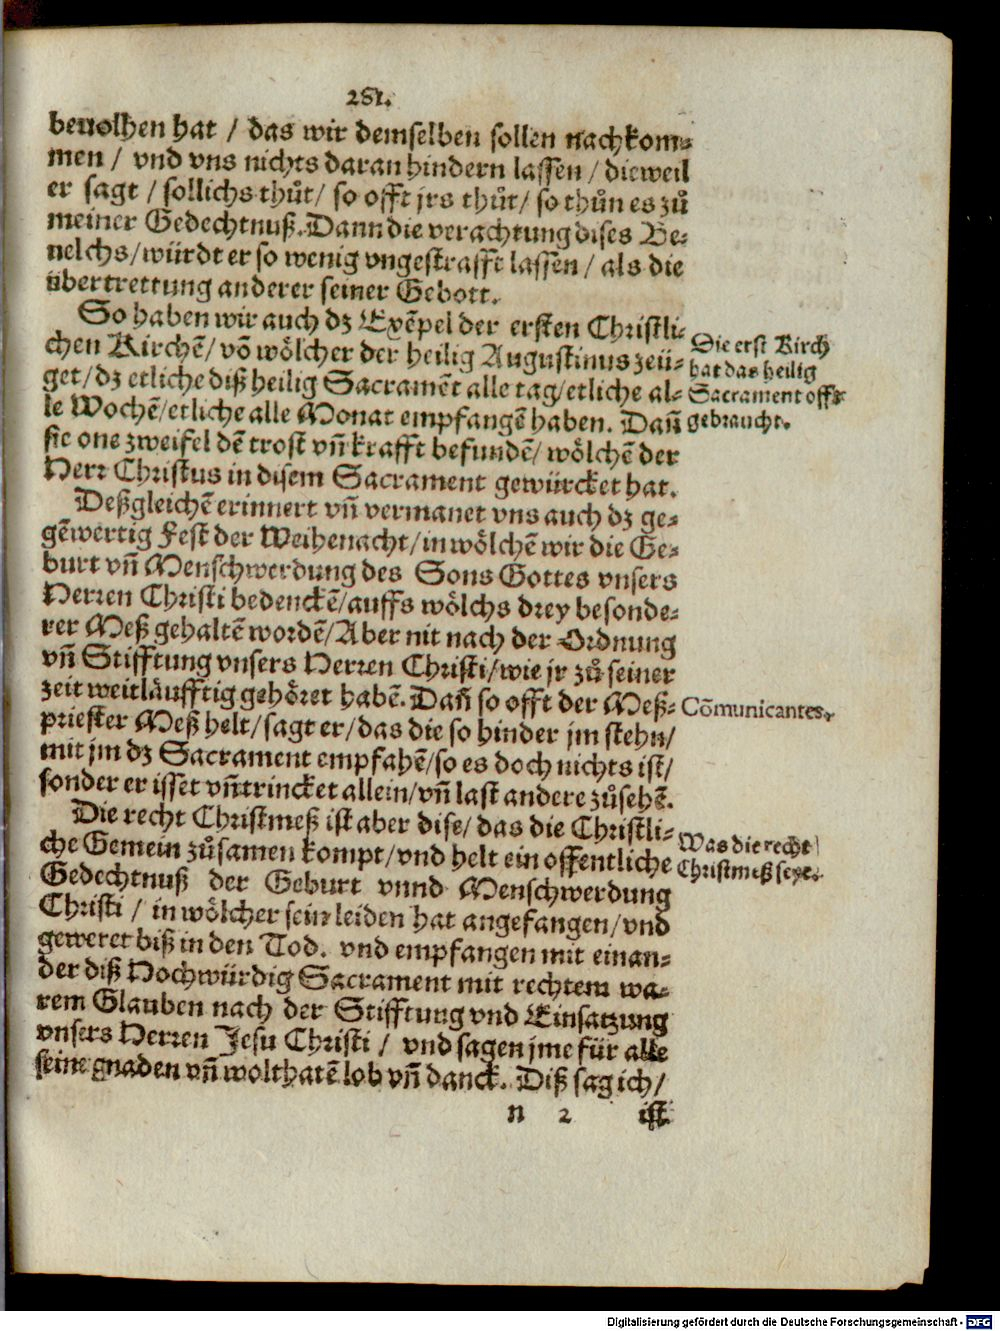 281.
beuolhen hat / das wir demselben sollen nachkom⸗
men / vnd vns nichts daran hindern lassen / dieweil
er sagt / sollichs thůt / so offt jrs thůt / so thůn es zů
meiner Gedechtnuß. Dann die verachtung dises Be⸗
uelchs / würdt er so wenig vngestrafft lassen / als die
übertrettung anderer seiner Gebott.
So haben wir auch dz Exẽpel der ersten Christli⸗
chen Kirchẽ / võ wölcher der heilig Augustinus zeü⸗
get / dz etliche diß heilig Sacramẽt alle tag / etliche al⸗
le Wochẽ / etliche alle Monat empfangẽ haben. Dañ
sie one zweifel dẽ trost vñ krafft befundẽ / wölchẽ der
Herr Christus in disem Sacrament gewürcket hat.
Die erst Kirch
hat das heilig
Sacrament offt
gebraucht.
Deßgleichẽ erinnert vñ vermanet vns auch dz ge⸗
gẽwertig Fest der Weihenacht / in wölchẽ wir die Ge⸗
burt vñ Menschwerdung des Sons Gottes vnsers
Herren Christi bedenckẽ / auffs wölchs drey besonde⸗
rer Meß gehaltẽ wordẽ / Aber nit nach der Ordnung
vñ Stifftung vnsers Herren Christi / wie jr zů seiner
zeit weitläufftig gehöret habẽ. Dañ so offt der Meß⸗
priester Meß helt / sagt er / das die so hinder jm stehn /
mit jm dz Sacrament empfahẽ / so es doch nichts ist /
sonder er isset vñ trincket allein / vñ last andere zůsehẽ.
Cõmunicantes.
Die recht Christmeß ist aber dise / das die Christli⸗
che Gemein zůsamen kompt / vnd helt ein offentliche
Gedechtnuß der Geburt vnnd Menschwerdung
Christi / in wölcher sein leiden hat angefangen / vnd
geweret biß in den Tod. vnd empfangen mit einan⸗
der diß Hochwürdig Sacrament mit rechtem wa⸗
rem Glauben nach der Stifftung vnd Einsatzung
vnsers Herren Jesu Christi / vnd sagen jme für alle
seine gnaden vñ wolthatẽ lob vñ danck. Diß sag ich /
Was die recht
Christmeß seye.
n 2 ist
Digitalisierung gefördert durch die Deutsche Forschungsgemeinschaft - DFG